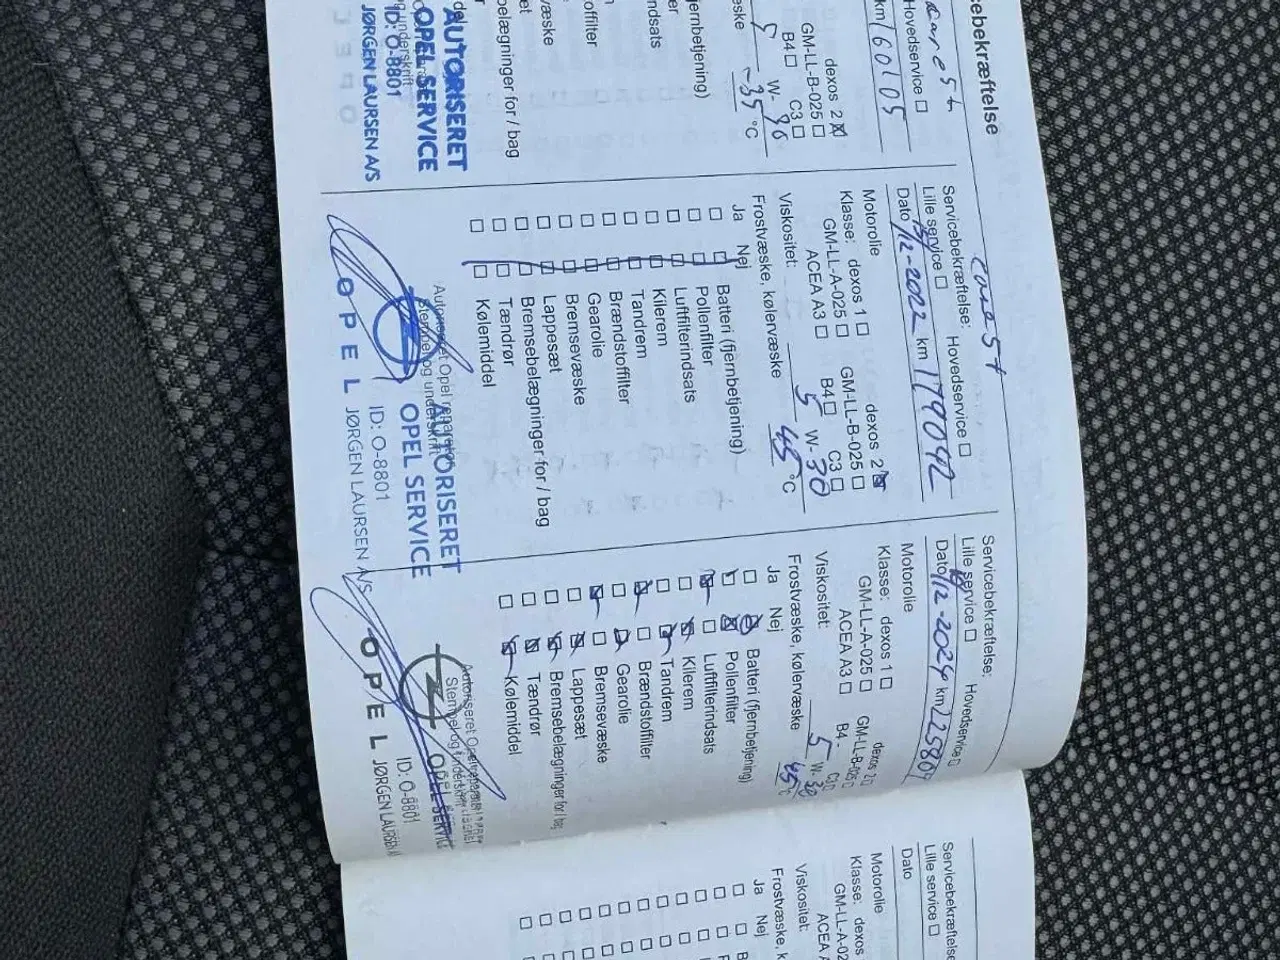 cebekræftelse
care 5+
Hovedservice
km 160105
dexos 2
GM-LL-B-025
B4 C3
5 W-
-35 °C
æske
jernbetjening)
ndsats
offilter
væske
belægninger for / bag
et
AUTORISERET
OPEL SERVICE
ID: O-8801
JØRGEN LAURSEN A/S
Servicebekræftelse:
Lille service Hovedservice
Dato /12-2022 km 179042
Motorolie
Klasse: dexos 1 dexos 2
GM-LL-A-025 GM-LL-B-025
ACEA A3 B4 C3
Viskositet: 5 W-30
Frostvæske, kølervæske 45 °C
Ja Nej
Batteri (fjernbetjening)
Pollenfilter
Luftfilterindsats
Kilerem
Tandrem
Brændstoffilter
Gearolie
Bremsevæske
Lappesæt
Bremsebelægninger for / bag
Tændrør
Kølemiddel
Autoriseret Opel reparatør
Stempel og underskrift
AUTORISERET
OPEL SERVICE
ID: O-8801
OPEL JØRGEN LAURSEN A/S
Servicebekræftelse:
Lille service Hovedservice
Dato /12-2024 km 22580
Motorolie
Klasse: dexos 1 dexos 2
GM-LL-A-025 GM-LL-B-025
ACEA A3 B4 C3
Viskositet: 5 W-30
Frostvæske, kølervæske 45 °C
Ja Nej
Batteri (fjernbetjening)
Pollenfilter
Luftfilterindsats
Kilerem
Tandrem
Brændstoffilter
Gearolie
Bremsevæske
Lappesæt
Bremsebelægninger for / baç
Tændrør
Kølemiddel
Stempel og underskrift
ID: O-8801
OPEL JØRGEN LAURSEN
Servicebekræftelse
Lille service
Dato
Motorolie
Klasse: dexos 1
GM-LL-A-02
ACEA A
Viskositet:
Frostvæske, k
Ja Nej